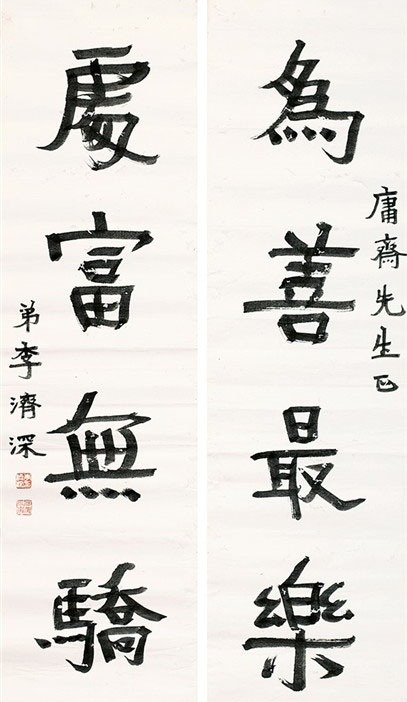 庸齋先生正
為善最樂
處富無驕
弟李濟深